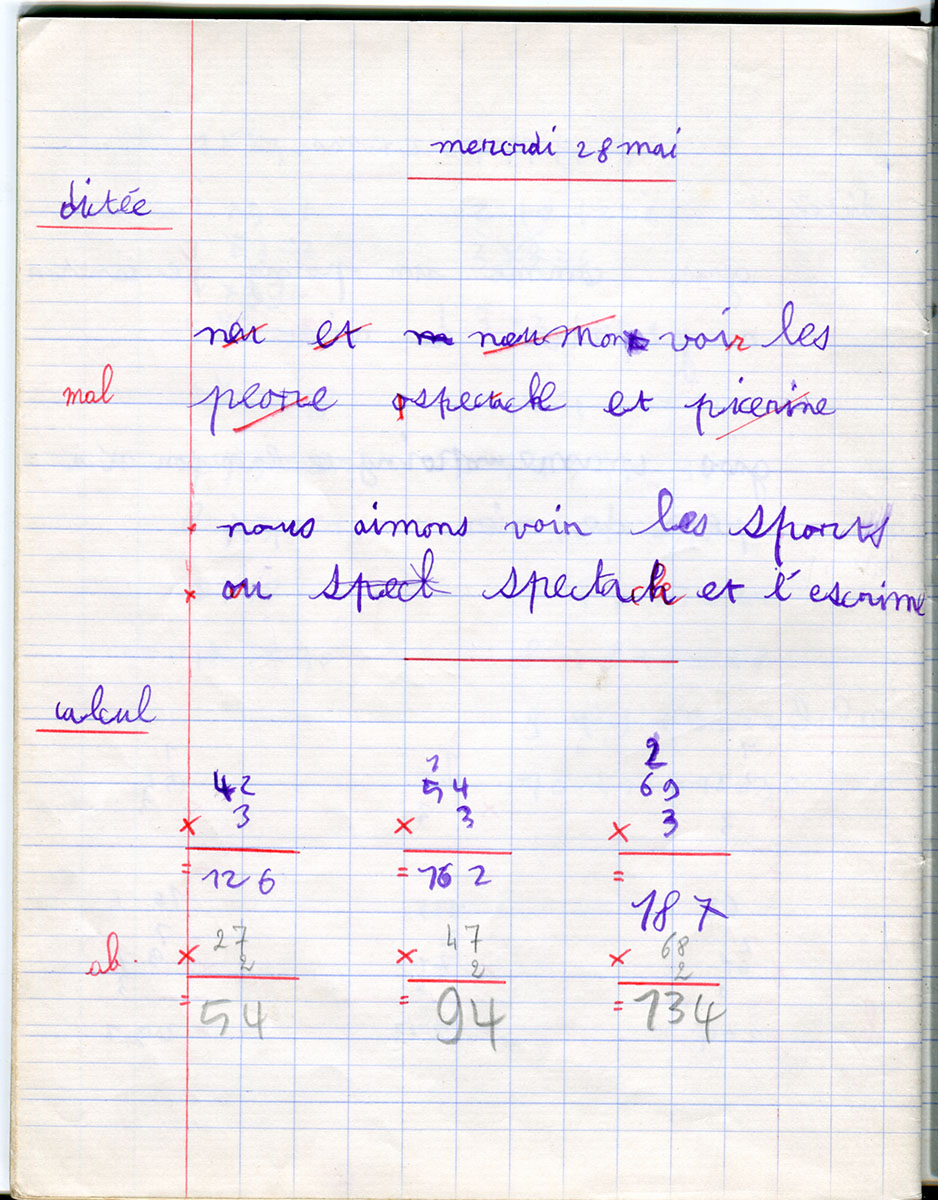 mercrdi 28 mai
dictée
et voir les
mal
spectacle et picerine
nous aimons voir les sports
au spect spectacle et l'escrime
calcul
1 2
42 54 69
× 3 × 3 × 3
= 126 = 162 = 187
ab. × 27 × 47 × 68
2 2 2
= 54 = 94 = 134